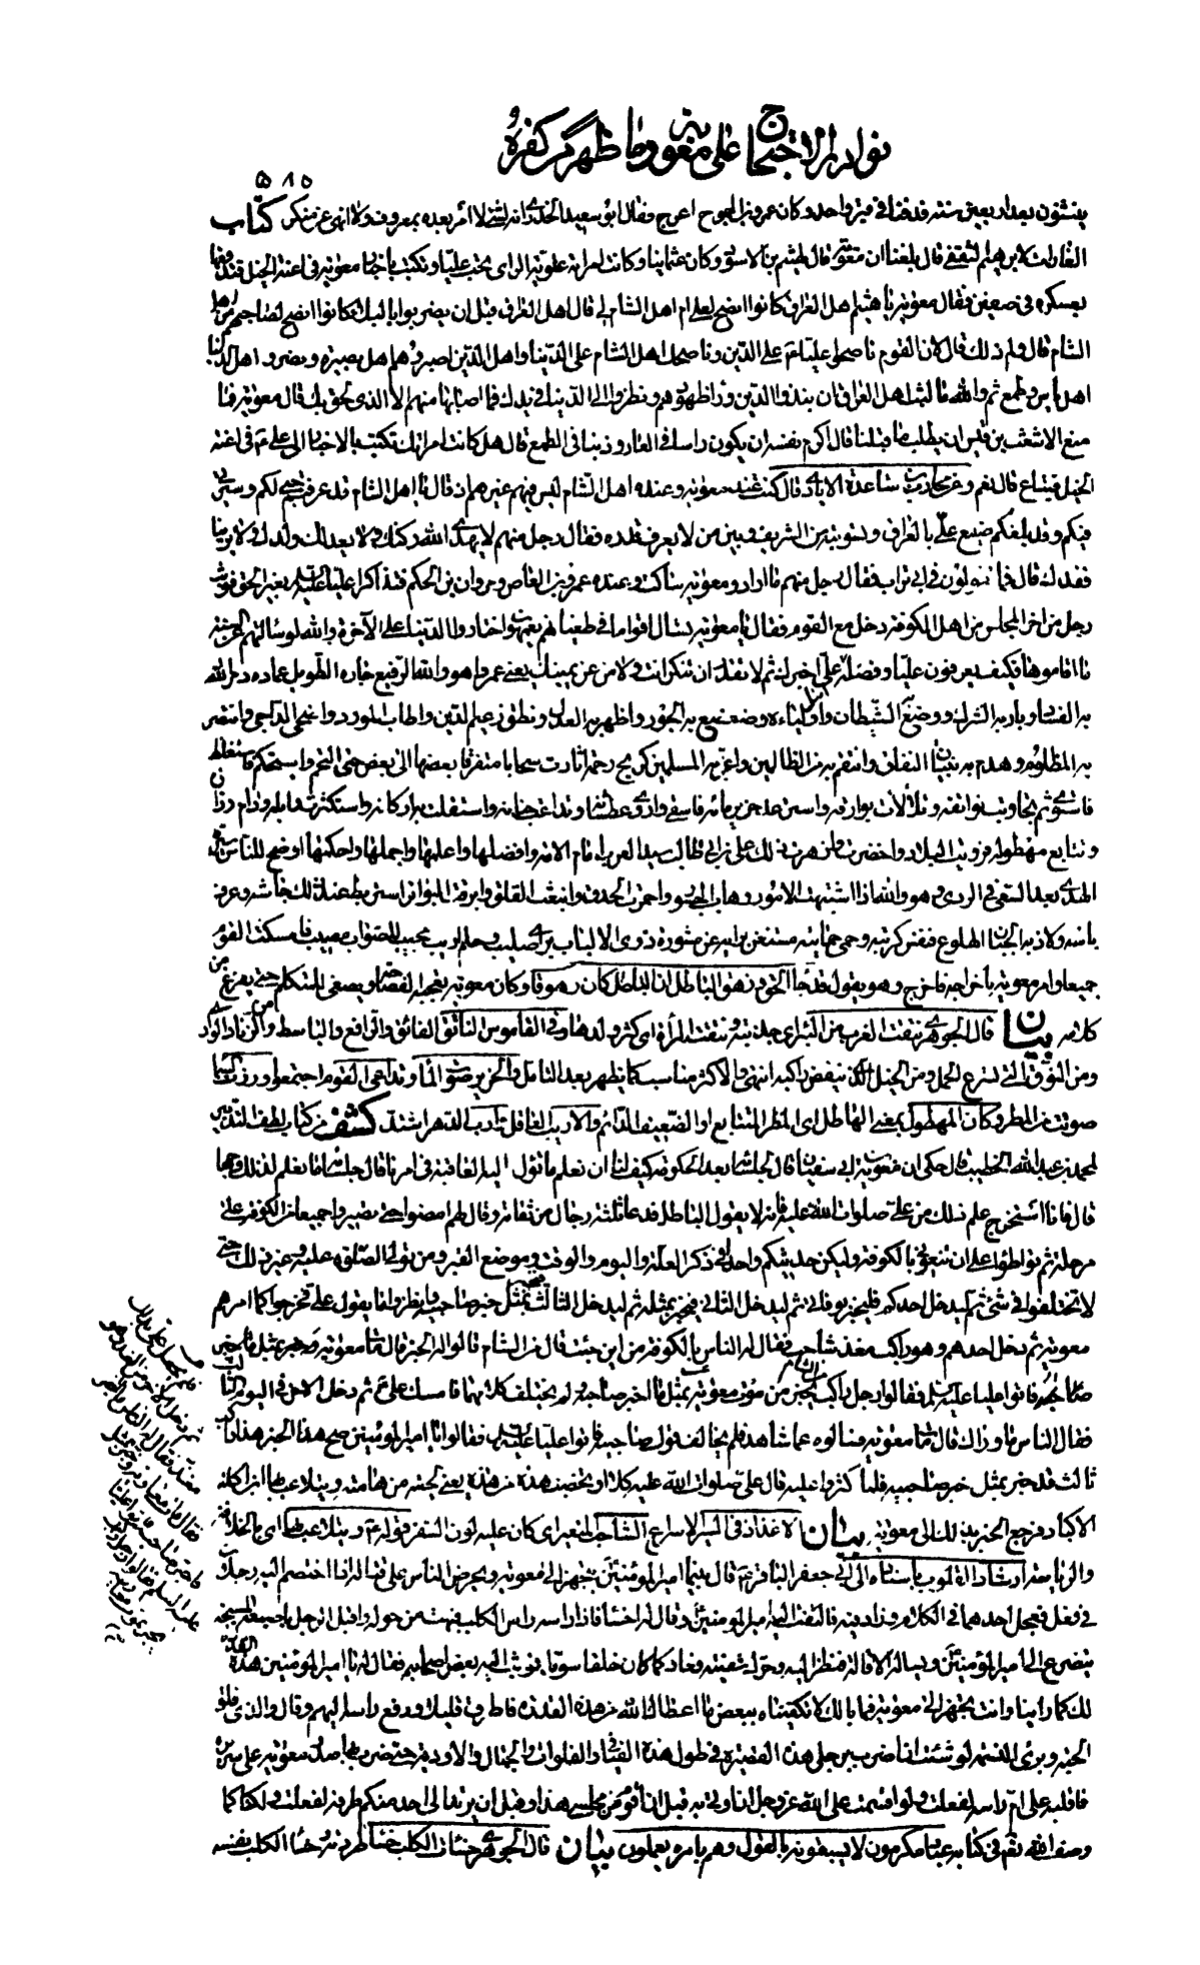 نوادر الاحتجاج على معوية وما ظهر من كفره
٥٨٥
ينشون بعد اربعين سنة قد دفنا في قبر واحد وكان عمرو بن الجموح اعرج فقال ابو سعيد الخدري لا نامر بعده بمعروف ولا ننهى عن منكر كتاب
الغارات لابرهيم الثقفي قال بلغنا ان معوية قال لهيثم بن الاسود وكان عثمانيا وكانت امراته علوية الراى تحب عليا وتكتب باخبار معوية في اعنة الخيل فتدفعها
بعسكره في صفين فقال معوية يا هيثم اهل العراق كانوا انصح لعلي ام اهل الشام لي قال اهل العراق قبل ان يضربوا بالبلاء كانوا انصح لصاحبهم من اهل
الشام قال ولم ذلك قال لان القوم ناصحوا عليا ع على الدين وناصحك اهل الشام على الدنيا واهل الدين اصبر وهم اهل بصيرة ونصر واهل الدنيا
اهل ياس وطمع ثم والله ما لبث اهل العراق ان نبذوا الدين وراء ظهورهم ونظروا الى الدنيا في يدك فما اصابها منهم الا الذي لحق بك قال معوية فما
منع الاشعث بن قيس ان يطلب ما قبلنا قال اكرم نفسه ان يكون راسا في العار وذنبا في الطمع قال هل كانت امراتك تكتب بالاخبار الى علي ع في اعنة
الخيل فتباع قال نعم وعن محارب بن ساعدة الايادي قال كنت عند معوية وعنده اهل الشام ليس فيهم غيرهم اذ قال يا اهل الشام قد عرفتم حبي لكم وسيرتي
فيكم وقد بلغكم صنيع علي بالعراق وتسويته بين الشريف وبين من لا يعرف قدره فقال رجل منهم لا يهد الله ركنك ولا يعدمك ولدك ولا يرينا
فقدك قال فما تقولون في ابي تراب فقال رجل منهم ما اراد ومعوية ساكت وعنده عمرو بن العاص ومروان بن الحكم فتذاكرا عليا عليه السلام بغير الحق فوثب
رجل من اخر المجلس من اهل الكوفة دخل مع القوم فقال يا معوية تسال اقواما في طغيانهم يعمهون واختاروا الدنيا على الآخرة والله لو سالتهم عن السنة
ما اقاموها فكيف يعرفون عليا وفضله علي اخبرك ثم لا تقدر ان تنكر انت ولا من عن يمينك يعني عمروا هو والله الرفيع جاره الطويل عماده دمر الله
به الفساد وبار به الشرك ووضع به الشيطان واولياءه وضعضع به الجور واظهر به العدل ونطق زعيم الدين واطاب المورد واضحى الداجي وانتصر
به المظلوم وهدم به بنيان النفاق وانتقم به من الظالمين واعز به المسلمين كريح رحمة اثارت سحابا متفرقا بعضها الى بعض حتى التحم واستحكم فاستغلظ
فاستوى ثم تجاوبت نواتقه وتلألأت بوارقه واسترعد خرير مائه فاسقى واروى عطشانه وتداعت جنانه واستقلت به اركانه واستكثرت وابله ودام رذاذه
وتتابع مهطوله فرويت البلاد واخضرت وازهرت ذلك علي بن ابي طالب سيد العرب امام الامة وافضلها واعلمها واجملها واحكمها اوضح للناس سيرة
الهدى بعد السعي في الردى وهو والله اذا اشتبهت الامور وهاب الجسور واحمرت الحدق وانبعث القلق وابرقت البواتر استربط عند ذلك جاشه وعرف
باسه ولاذ به الجبان الهلوع فنفس كربته وحمى حمايته مستغن برايه عن مشورة ذوي الالباب براي صليب وحلم اريب مجيب للصواب مصيب فامسكت القوم
جميعا وامر معوية باخراجه فاخرج وهو يقول قد جاء الحق وزهق الباطل ان الباطل كان زهوقا وكان معوية يعجبه الفصاحة ويصغي للمتكلم حتى يفرغ من
كلامه بيان قال الجوهري نتقت الغرب من البئر اي جذبته ونتقت المرأة اي كثر ولدها وفي القاموس الناتق الفاتق والرافع والباسط
صوت المطر وكان المهطول بمعنى الهاطل اي المطر المتتابع او الضعيف الدائم والاريب العاقل وارب الدهر اشتد كشف من كتاب لطف التدبير
لمحمد بن عبد الله الخطيب قال حكي ان معوية بن ابي سفيان قال لجلسائه بعد الحكومة كيف لنا ان نعلم ما تؤل اليه العاقبة في امرنا قال جلساؤه ما نعلم لذلك وجها
قال فانا استخرج علم ذلك من علي صلوات الله عليه فانه لا يقول الباطل فدعا ثلثة رجال من ثقاته وقال لهم امضوا حتى تصيروا جميعا من الكوفة على
مرحلة ثم تواطؤا على ان تنعوني بالكوفة وليكن حديثكم واحدا في ذكر العلة واليوم والوقت وموضع القبر ومن تولى الصلوة عليه وغير ذلك حتى
لا تختلفوا في شيء ثم ليدخل احدكم فليخبر بوفاتي ثم ليدخل الثاني فيخبر بمثله ثم ليدخل الثالث فيخبر بمثل خبر صاحبيه وانظروا ما يقول علي فخرجوا كما امرهم
معوية ثم دخل احدهم وهو راكب مغذ شاحب فقال له الناس بالكوفة من اين جئت قال من الشام قالوا له الخبر قال مات معوية
فقال الناس ما وراك قال مات معوية فسالوه عما شاهد فلم يخالف قول صاحبيه فاتوا عليا عليه السلام فقالوا يا امير المؤمنين صح هذا الخبر هذا راكب
ثالث قد خبر بمثل خبر صاحبيه فلما كثروا عليه قال علي صلوات الله عليه كلا او تخضب هذه من هذه يعني لحيته من هامته ويتلاعب بها ابن اكلة
الاكباد فرجع الخبر بذلك الى معوية بيان الاغذاذ في السير الاسراع الشاحب المتغير اي كان عليه لون السفر قوله ع ويتلاعب بها اي بالخلافة
والرئاسة ارشاد القلوب باسناده الى ابي جعفر الباقر ع قال بينما امير المؤمنين يتجهز الى معوية ويحرض الناس على قتاله اذا اختصم اليه رجلان
في فعل فعجل احدهما في الكلام وزاد فيه فالتفت اليه امير المؤمنين وقال له اخسأ فاذا راسه راس الكلب فبهت من حوله واقبل الرجل باصبعه المسبحة
يتضرع الى امير المؤمنين ويساله الاقالة فنظر اليه وحرك شفتيه فعاد كما كان خلقا سويا فوثب اليه بعض اصحابه فقال له يا امير المؤمنين هذه القدرة
لك كما راينا وانت تجهز الى معوية فما بالك لا تكفيناه ببعض ما اعطاك الله من هذه القدرة فاطرق قليلا ورفع راسه اليهم وقال والذي فلق
الحبة وبرئ النسمة لو شئت ان اضرب برجلي هذه القصيرة في طول هذه الفيافي والفلوات والجبال والاودية حتى اضرب بها صدر معوية على سريره
فاقلبه على ام راسه لفعلت ولو اقسمت على الله عز وجل ان اوتى به قبل ان اقوم من مجلسي هذا وقبل ان يرتد الى احد منكم طرفه لفعلت ولكنا كما
وصف الله تعم في كتابه عباد مكرمون لا يسبقونه بالقول وهم بامره يعملون بيان قال الجوهري خسات الكلب خسئا طردته وخسأ الكلب بنفسه